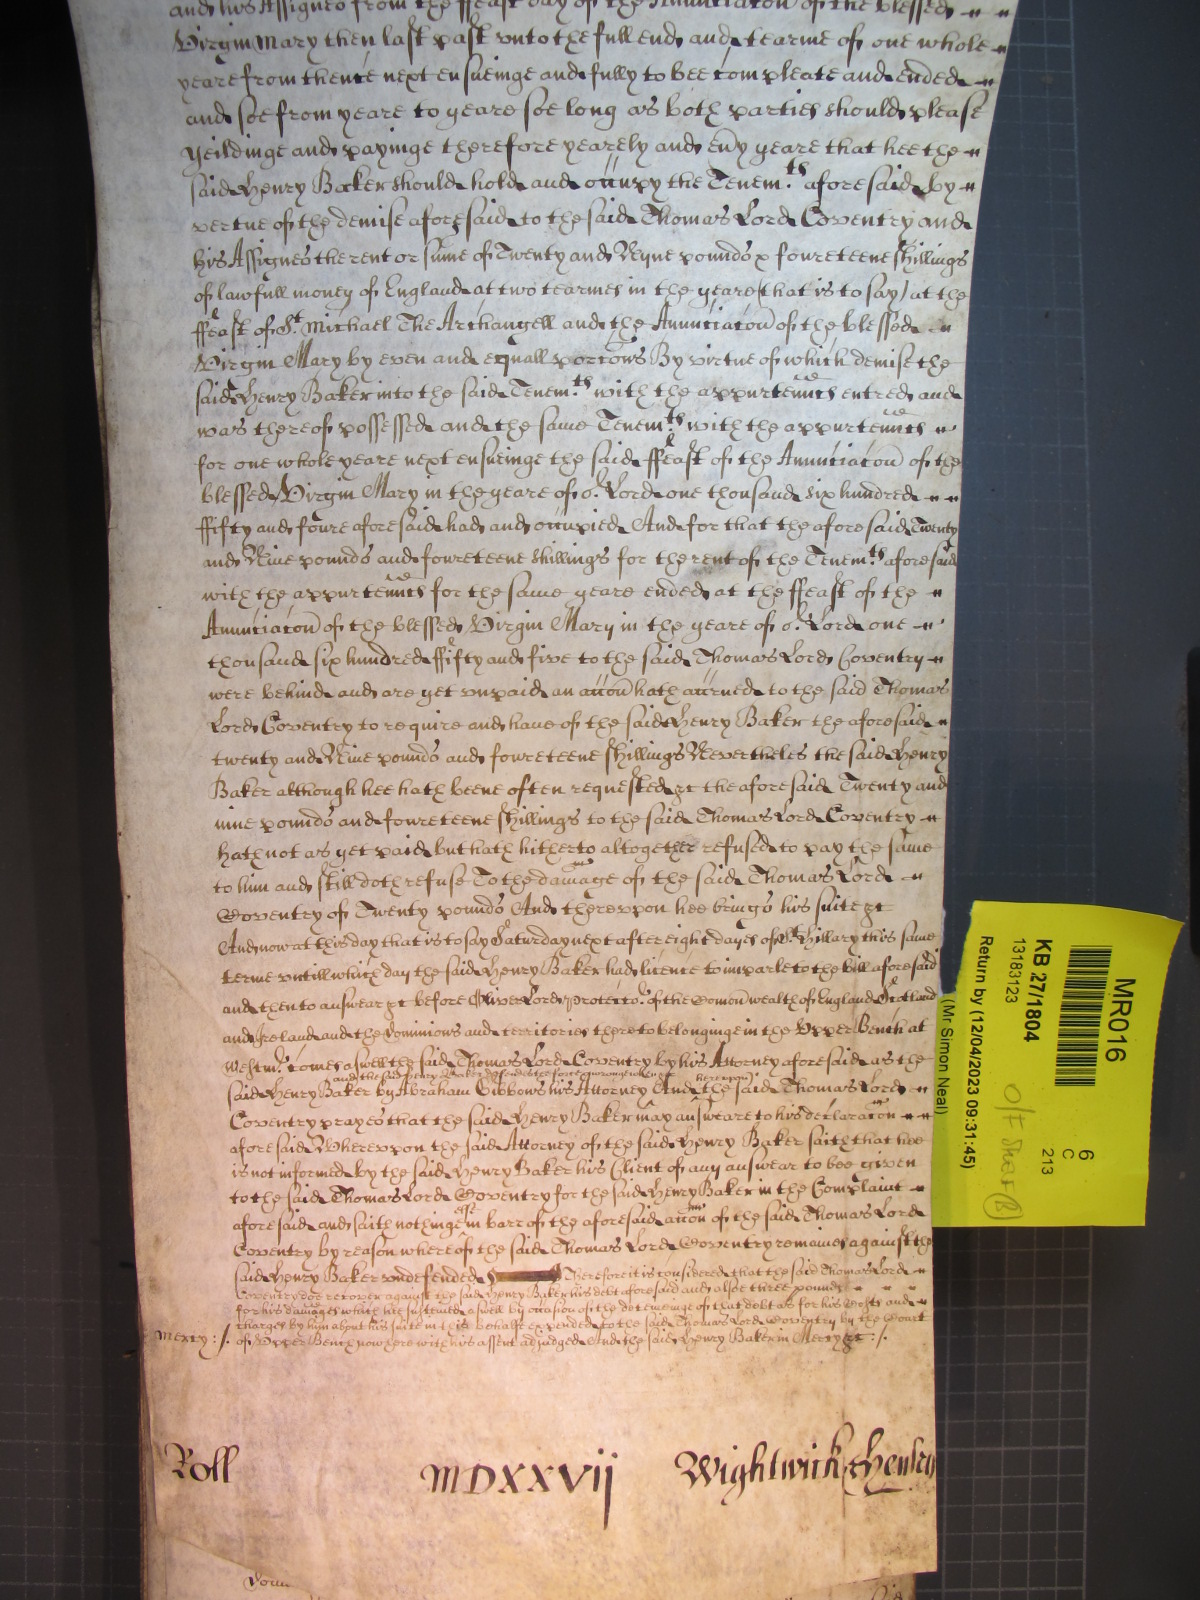 and his Assignes from the ffeast day of the Anunciacon of the blessed
Virgin Mary then last past vnto the full end and tearme of one whole
yeare from thence next ensueinge and fully to bee compleate and ended
and soe from yeare to yeare soe long as both parties should please
yeildinge and payinge therefore yearely and eu'y yeare that hee the
said Henry Baker should hold and occupy the Tenem:ts aforesaid by
vertue of the demise aforesaid to the said Thomas Lord Coventry and
his Assignes the rent or sume of Twenty and Nyne pounds & foureteene shillings
of lawfull money of England at two tearmes in the yeare (that is to say) at the
ffeast of St. Michael The Archangell and the Anunciacon of the blessed
Virgin Mary by even and equall porcons By virtue of which demise the
said Henry Baker into the said Tenem:ts with the appurtenncs entred and
was thereof possessed and the same Tenem:ts with the appurtenncs
for one whole yeare next ensueinge the said ffeast of the Anunciacon of the
blessed Virgin Mary in the yeare of or. Lord one thousand six hundred
ffifty and foure aforesaid had and occupied And for that the aforesaid Twenty
and Nine pounds and foureteene shillings for the rent of the Tenem:ts aforesaid
with the appurtenncs for the same yeare ended at the ffeast of the
Anunciacon of the blessed Virgin Mary in the yeare of or. Lord one
thousand six hundred ffifty and five to the said Thomas Lord Coventry
were behind and are yet vnpaid an accon hath accrued to the said Thomas
Lord Coventry to require and haue of the said Henry Baker the aforesaid
twenty and Nine pounds and foureteene shillings Neverthelesthe said Henry
Baker although hee hath beene often requested &c the aforesaid Twenty and
nine pounds and foureteene shillings to the said Thomas Lord Coventry
hath not as yet paid but hath hitherto altogether refused to pay the same
to him and still doth refuse To the damage of the said Thomas Lord
Coventry of Twenty pounds And therevpon hee brings his suite &c
And now at this day that is to say Saturday next after eight dayes of St. Hillary this same
terme vntill which day the said Henry Baker had licence to imparle to the bill aforesaid
and then to answear &c before Oliver Lord Protector of the Comon wealth of England Scotland
and Ireland and the Dominions and territories thereto belonginge in the Vpper Bench at
Westmr. comes aswell the said Thomas Lord Coventry by his Attorney aforesaid as the
and the said Henry Baker defends the force and wrong when &c
said Henry Baker by Abraham Gibbons his Attorney And herevpon the said Thomas Lord
Coventry prayes that the said Henry Baker may answeare to his declaracon
aforesaid Wherevpon the said Attorney of the said Henry Baker saith that hee
is not informed by the said Henry Baker his Client of any answear to bee given
to the said Thomas Lord Coventry for the said Henry Baker in the Complaint
aforesaid and saith nothinge else in barr of the aforesaid accon of the said Thomas Lord
Coventry by reason whereof the said Thomas Lord Coventry remaines against the
said Henry Baker vndefended Therefore it is considered that the said Thomas Lord
Coventry doe recover against the said Henry Baker his debt aforesaid and alsoe three pounds
for his damages which hee susteined aswell by occasion of the deteineinge of that debt as for his Costs and
charges by him about his suite in this behalfe expended to the said Thomas Lord Coventry by the Court
Mercy :/. of Vpper Bench now here with his assent adjudged And the said Henry Baker in Mercy &c :/.
Roll MDXXVij Wightwick & Henley
MR016
KB 27/1804
13183123
Return by (12/04/2023 09:31:45)
(Mr Simon Neal)
6
C
213